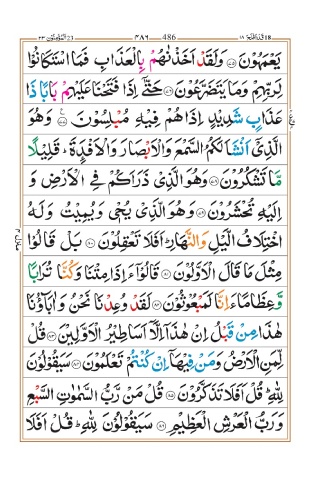 قد افلح ١٨ 486 ٤٨٦ المؤمنون ٢٣
يَعْمَهُوْنَ ۝٧٥ وَلَقَدْ اَخَذْنٰهُمْ بِالْعَذَابِ فَمَا اسْتَكَانُوْا
لِرَبِّهِمْ وَمَا يَتَضَرَّعُوْنَ ۝٧٦ حَتّٰۤى اِذَا فَتَحْنَا عَلَيْهِمْ بَابًا ذَا
عَذَابٍ شَدِيْدٍ اِذَا هُمْ فِيْهِ مُبْلِسُوْنَ ۝٧٧ وَهُوَ
الَّذِيْۤ اَنْشَاَ لَكُمُ السَّمْعَ وَالْاَبْصَارَ وَالْاَفْـِٕدَةَ ؕ قَلِيْلًا
مَّا تَشْكُرُوْنَ ۝٧٨ وَهُوَ الَّذِيْ ذَرَاَكُمْ فِي الْاَرْضِ وَ
اِلَيْهِ تُحْشَرُوْنَ ۝٧٩ وَهُوَ الَّذِيْ يُحْيٖ وَيُمِيْتُ وَلَهُ
اخْتِلَافُ الَّيْلِ وَالنَّهَارِ ؕ اَفَلَا تَعْقِلُوْنَ ۝٨٠ بَلْ قَالُوْا
مِثْلَ مَا قَالَ الْاَوَّلُوْنَ ۝٨١ قَالُوْۤا ءَاِذَا مِتْنَا وَكُنَّا تُرَابًا
وَّعِظَامًا ءَاِنَّا لَمَبْعُوْثُوْنَ ۝٨٢ لَقَدْ وُعِدْنَا نَحْنُ وَاٰبَآؤُنَا
هٰذَا مِنْ قَبْلُ اِنْ هٰذَاۤ اِلَّاۤ اَسَاطِيْرُ الْاَوَّلِيْنَ ۝٨٣ قُلْ
لِّمَنِ الْاَرْضُ وَمَنْ فِيْهَاۤ اِنْ كُنْتُمْ تَعْلَمُوْنَ ۝٨٤ سَيَقُوْلُوْنَ
لِلّٰهِ ؕ قُلْ اَفَلَا تَذَكَّرُوْنَ ۝٨٥ قُلْ مَنْ رَّبُّ السَّمٰوٰتِ السَّبْعِ
وَرَبُّ الْعَرْشِ الْعَظِيْمِ ۝٨٦ سَيَقُوْلُوْنَ لِلّٰهِ ؕ قُلْ اَفَلَا